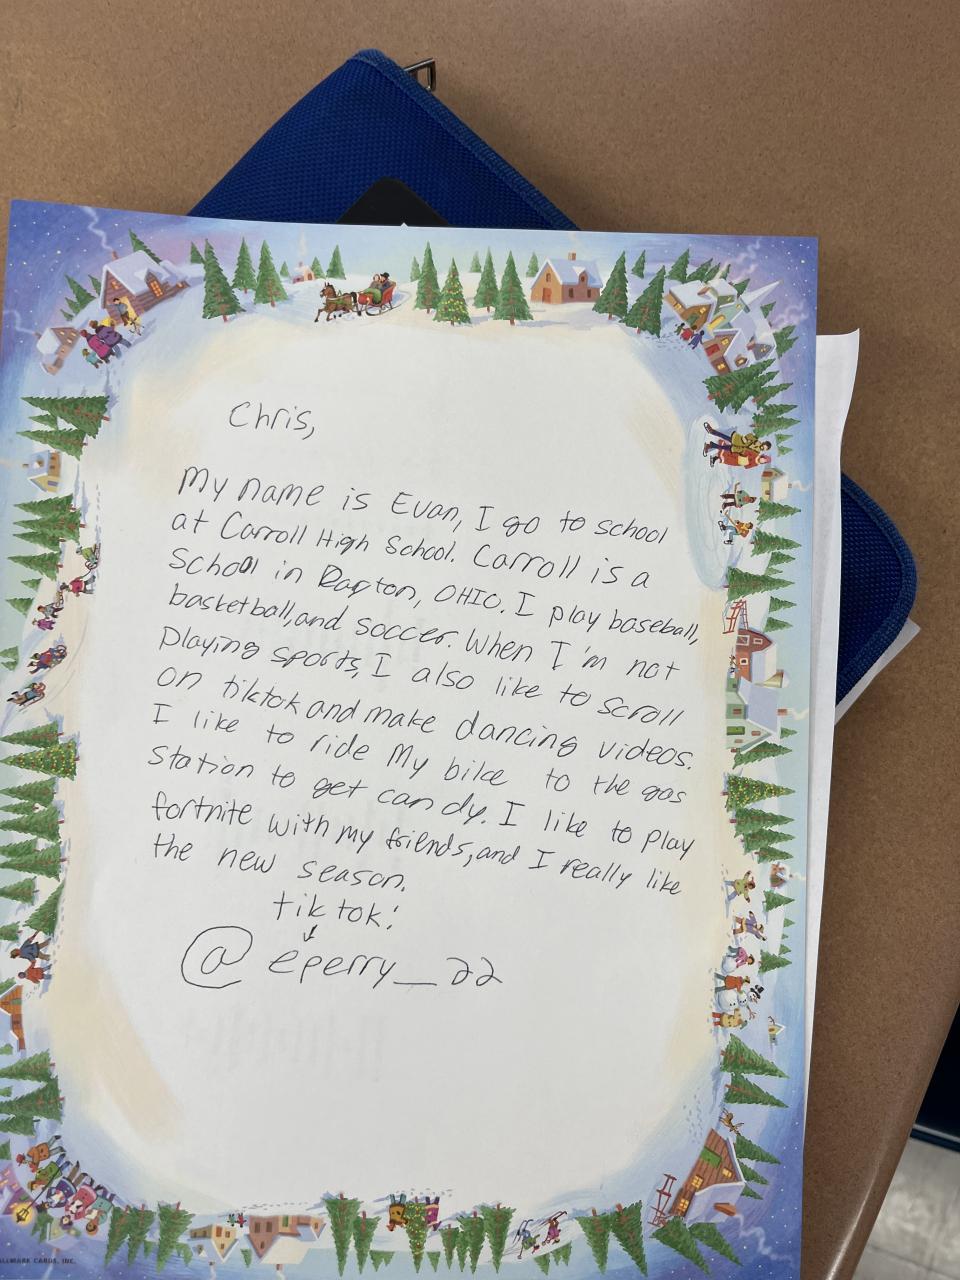 Chris,
My name is Evan, I go to school
at Carroll High School. Carroll is a
School in Dayton, OHIO. I play baseball,
basketball, and soccer. When I'm not
playing sports, I also like to scroll
on tiktok and make dancing videos.
I like to ride My bike to the gas
station to get candy. I like to play
fortnite with my friends, and I really like
the new season.
tiktok:
@eperry_22
LLMARK CARDS, INC.